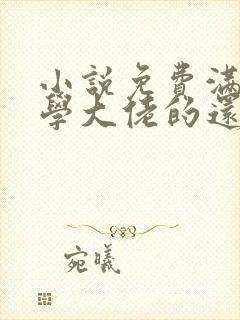 小說免費滿
學大佬的還
宛曦